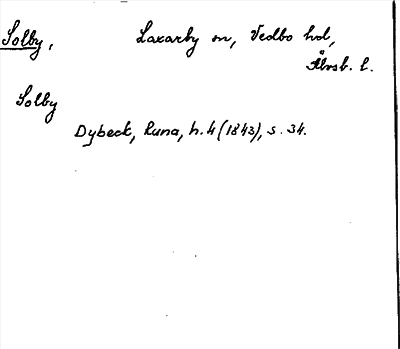 Solby, Laxarby sn, Vedbo hd,
Älvsb. l.
Solby
Dybeck, Runa, h. 4 (1843), s. 34.